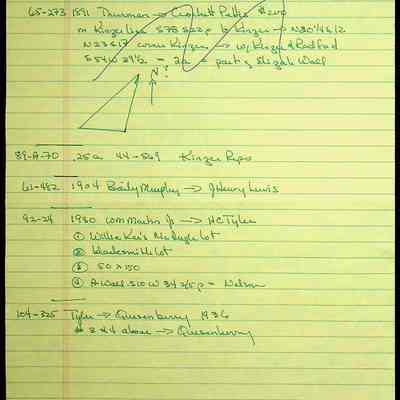 65-273 1891 Thurman → Crockett Pettis $200
m Kinzer line S78 S22p to Kinzer → N30¼ 612
N23 S17 corner Kinzer → w/ Kinzer & Radford
S54 W 29½ = 2a = part of Elizah Wall
N?
89-A-70 .25a 44-569 Kinzer Repo
61-482 1904 Baily Murphy → J Henry Lewis
92-24 1930 Com Martin Jr → HC Tyler
① Willie Kee's lot
② blacksmith lot
③ 50 x 150
④ A. Wall .510 W 34 2/5p = Nelson
104-325 Tyler → Quesenberry 1936
3 & 4 above → Quesenberry